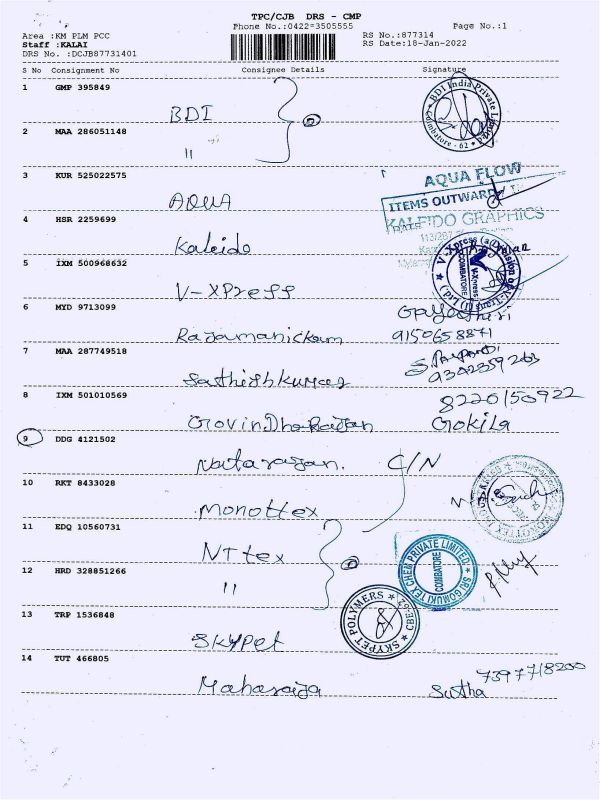 TPC/CJB DRS - CMP
Phone No.:0422=3505555
Page No.:1
Area :KM PLM PCC
Staff :KALAI
DRS No. :DCJB87731401
RS No.:877314
RS Date:18-Jan-2022
S No Consignment No Consignee Details Signature
1 GMP 395849
BDI
BDI India Private Limited
Coimbatore - 62
2 MAA 286051148
"
3 KUR 525022575
AQUA
AQUA FLOW
ITEMS OUTWARD
4 HSR 2259699
Kaleido
KALEIDO GRAPHICS
5 IXM 500968632
V-XPress
COIMBATORE
6 MYD 9713099
Rajamanickam
Gayathiri
9150658871
7 MAA 287749518
Sathishkumar
9342359263
8 IXM 501010569
8220150922
GovinDharajan
Gokila
9 DDG 4121502
Natarajan. C/N
10 RKT 8433028
Monottex
11 EDQ 10560731
NTtex
SRI GOMUKI TEX CHEM PRIVATE LIMITED
COIMBATORE
12 HRD 328851266
"
13 TRP 1536848
SKYPet
SKYPET POLYMERS
CBE-62
14 TUT 466805
Maharaja
Sutha
7397718200